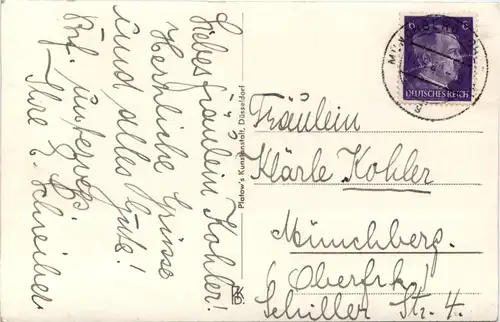 Liebes Fräulein Kohler!
Herzliche Grüsse
und alles Gute!
unterwegs
Ihre E. Schreiber
Platow's Kunstanstalt, Düsseldorf
6 6
DEUTSCHES REICH
Fräulein
Klärle Kohler
Münchberg.
(Oberfrk)
Schiller Str. 4.